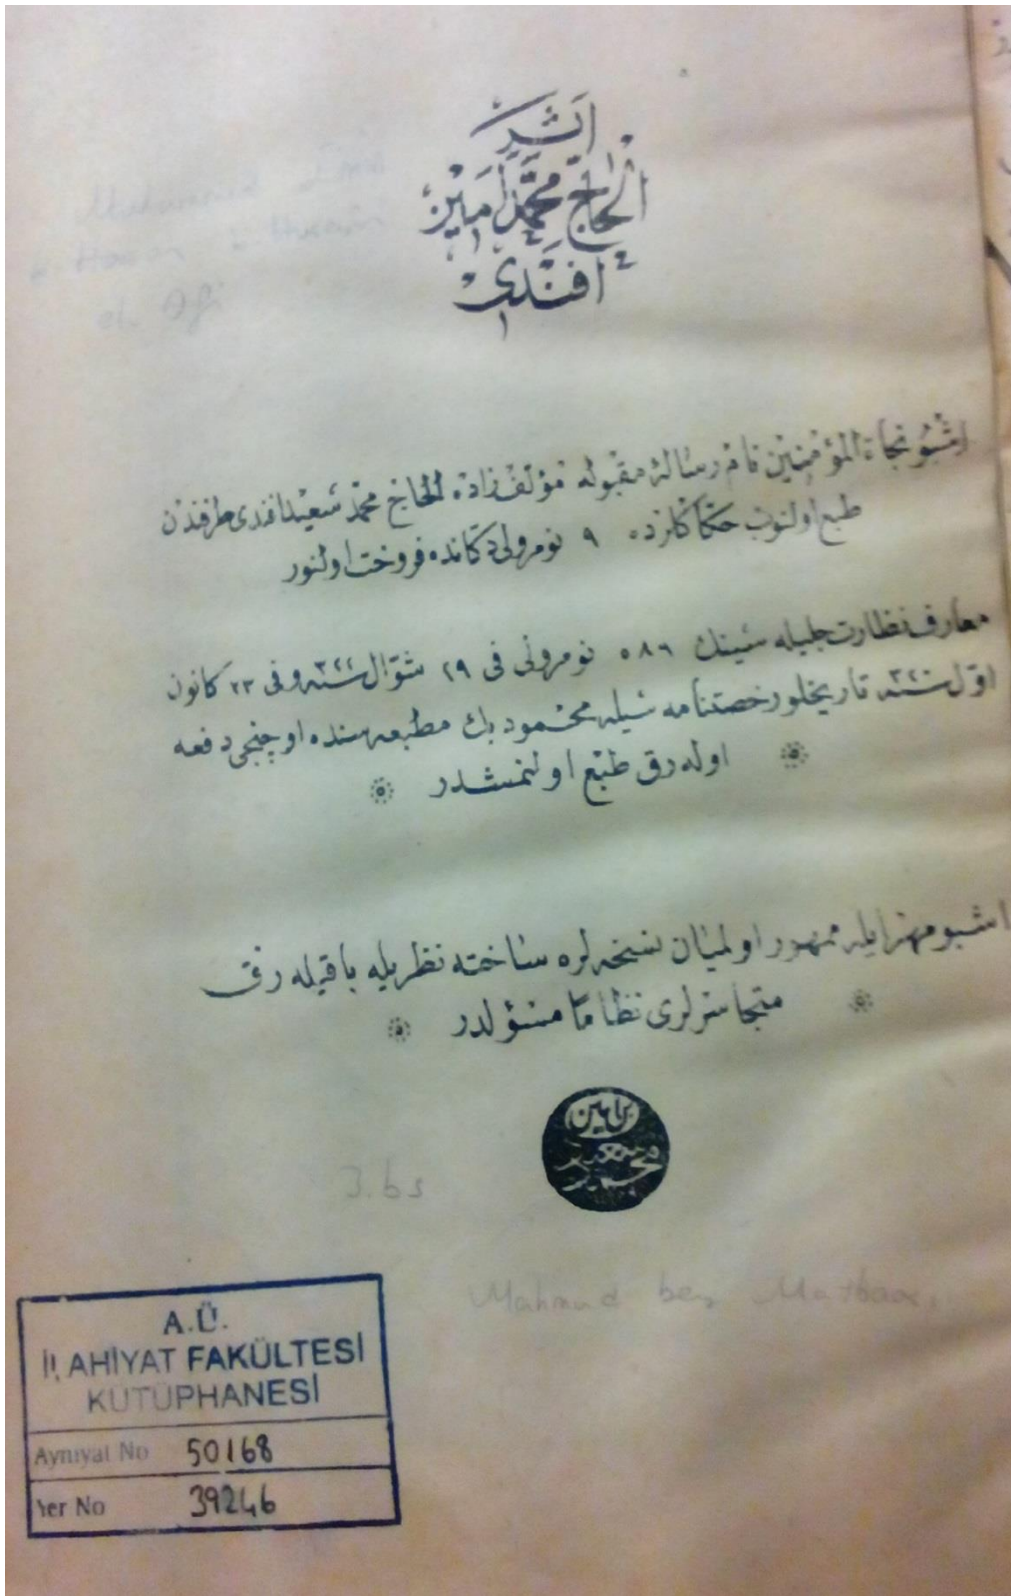 اثر
الحاج محمد امین
افندی
اشبو نجاة المؤمنین نام رسالۀ مقبوله مؤلف زاده الحاج محمد سعید افندی طرفندن
طبع اولنوب حکاکلرده ٩ نومرولی دکانده فروخت اولنور
معارف نظارت جلیله سینك ٥٨٦ نومرولی فی ٢٩ شوال سنه ٣٢٢ و فی ٢٣ کانون
اول سنه ٣٢٠ تاریخلو رخصتنامه سیله محمود بك مطبعه سنده اوچنجی دفعه
اوله رق طبع اولنمشدر
اشبو مهر ایله ممهور اولمیان نسخه لره ساخته نظریله باقیله رق
متجاسرلری نظاما مسؤلدر
بن امین
محمد سعید
3. bs
Mahmud bey Matbaası
A.Ü.
İLAHİYAT FAKÜLTESİ
KÜTÜPHANESİ
Ayniyat No 50168
Yer No 39246